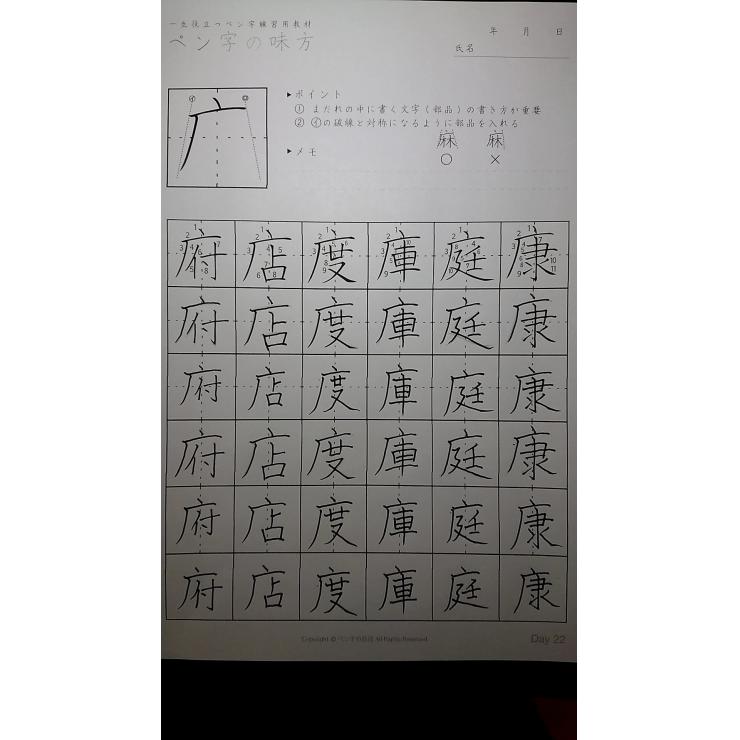 一生役立つペン字練習用教材
ペン字の味方
年 月 日
氏名
イ
▶ポイント
① まだれの中に書く文字(部品)の書き方が重要
② ㋑の破線と対称になるように部品を入れる
麻 麻
▶メモ
○ ×
府 店 度 庫 庭 康
府 店 度 庫 庭 康
府 店 度 庫 庭 康
府 店 度 庫 庭 康
府 店 度 庫 庭 康
府 店 度 庫 庭 康
Copyright © ペン字の味方 All Rights Reserved.
Day 22